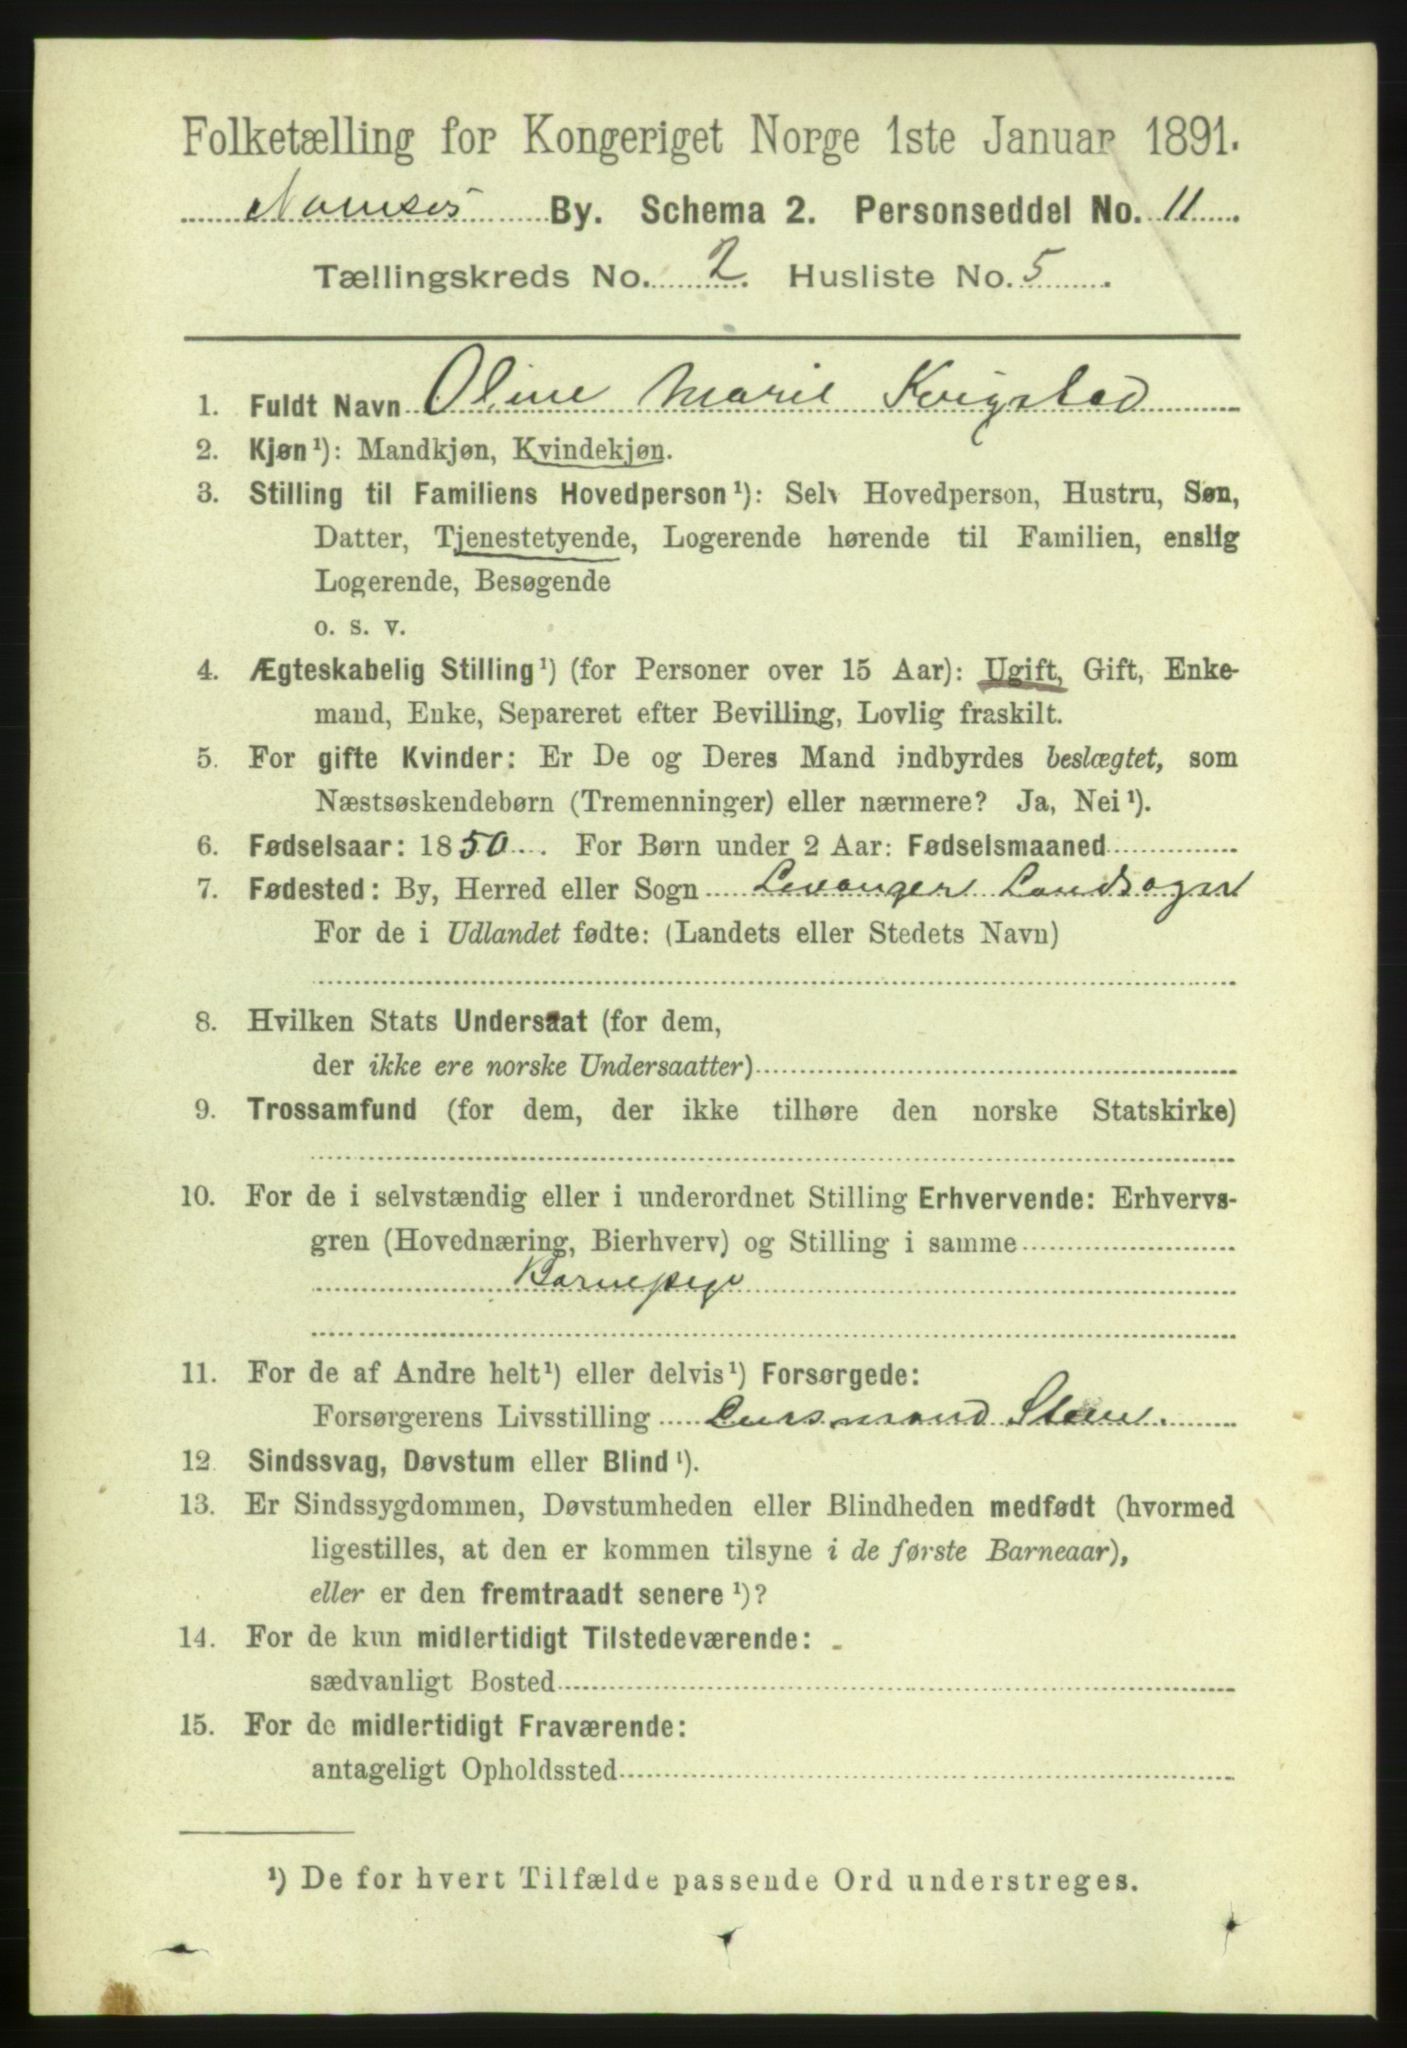 Folketælling for Kongeriget Norge 1ste Januar 1891.
Namsos By. Schema 2. Personseddel No. 11
Tællingskreds No. 2. Husliste No. 5
1. Fuldt Navn Oline Marie Kvigstad
2. Kjøn¹): Mandkjøn, Kvindekjøn.
3. Stilling til Familiens Hovedperson¹): Selv Hovedperson, Hustru, Søn,
Datter, Tjenestetyende, Logerende hørende til Familien, enslig
Logerende, Besøgende
o. s. v.
4. Ægteskabelig Stilling¹) (for Personer over 15 Aar): Ugift, Gift, Enke-
mand, Enke, Separeret efter Bevilling, Lovlig fraskilt.
5. For gifte Kvinder: Er De og Deres Mand indbyrdes beslægtet, som
Næstsøskendebørn (Tremenninger) eller nærmere? Ja, Nei¹).
6. Fødselsaar: 1850. For Børn under 2 Aar: Fødselsmaaned
7. Fødested: By, Herred eller Sogn Levanger Landsogn
For de i Udlandet fødte: (Landets eller Stedets Navn)
8. Hvilken Stats Undersaat (for dem,
der ikke ere norske Undersaatter)
9. Trossamfund (for dem, der ikke tilhøre den norske Statskirke)
10. For de i selvstændig eller i underordnet Stilling Erhvervende: Erhvervs-
gren (Hovednæring, Bierhverv) og Stilling i samme
Barnepige
11. For de af Andre helt¹) eller delvis¹) Forsørgede:
Forsørgerens Livsstilling Lensmand
12 Sindssvag, Døvstum eller Blind¹).
13. Er Sindssygdommen, Døvstumheden eller Blindheden medfødt (hvormed
ligestilles, at den er kommen tilsyne i de første Barneaar),
eller er den fremtraadt senere¹)?
14. For de kun midlertidigt Tilstedeværende:
sædvanligt Bosted
15. For de midlertidigt Fraværende:
antageligt Opholdssted
¹) De for hvert Tilfælde passende Ord understreges.